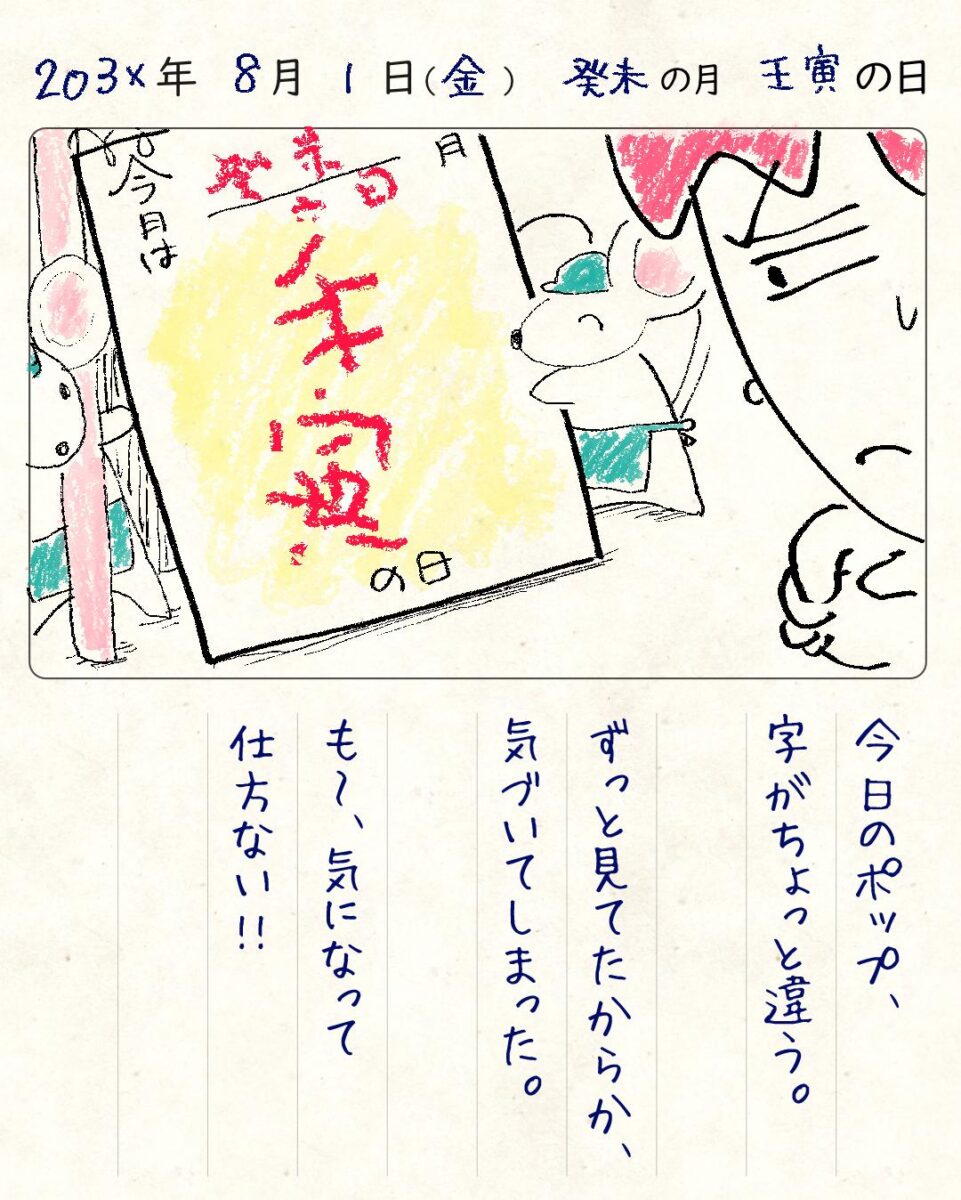 203x年 8月 1日(金) 癸未の月 壬寅の日
今月は
癸未 月
寅
の日
今日のポップ、
字がちょっと違う。
ずっと見てたからか、
気づいてしまった。
も〜、気になって
仕方ない!!